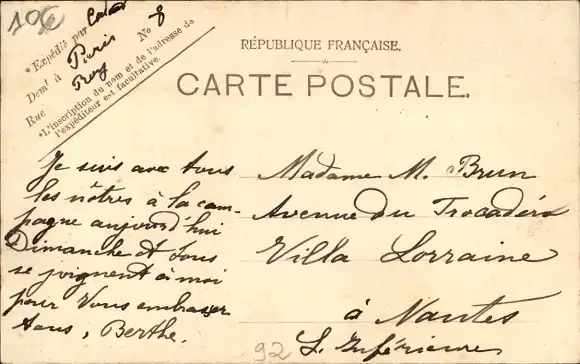 10€
*Expédié par
Demt à Paris
Rue No 8
*L'inscription du nom et de l'adresse de
l'expéditeur est facultative.
RÉPUBLIQUE FRANÇAISE.
CARTE POSTALE.
Je suis avec tous
les nôtres à la cam-
pagne aujourd'hui
Dimanche et tous
se joignent à moi
pour vous embrasser
tous, Berthe.
Madame M. Brun
Avenue du Trocadéro
Villa Lorraine
à Nantes
L. Inférieure
92